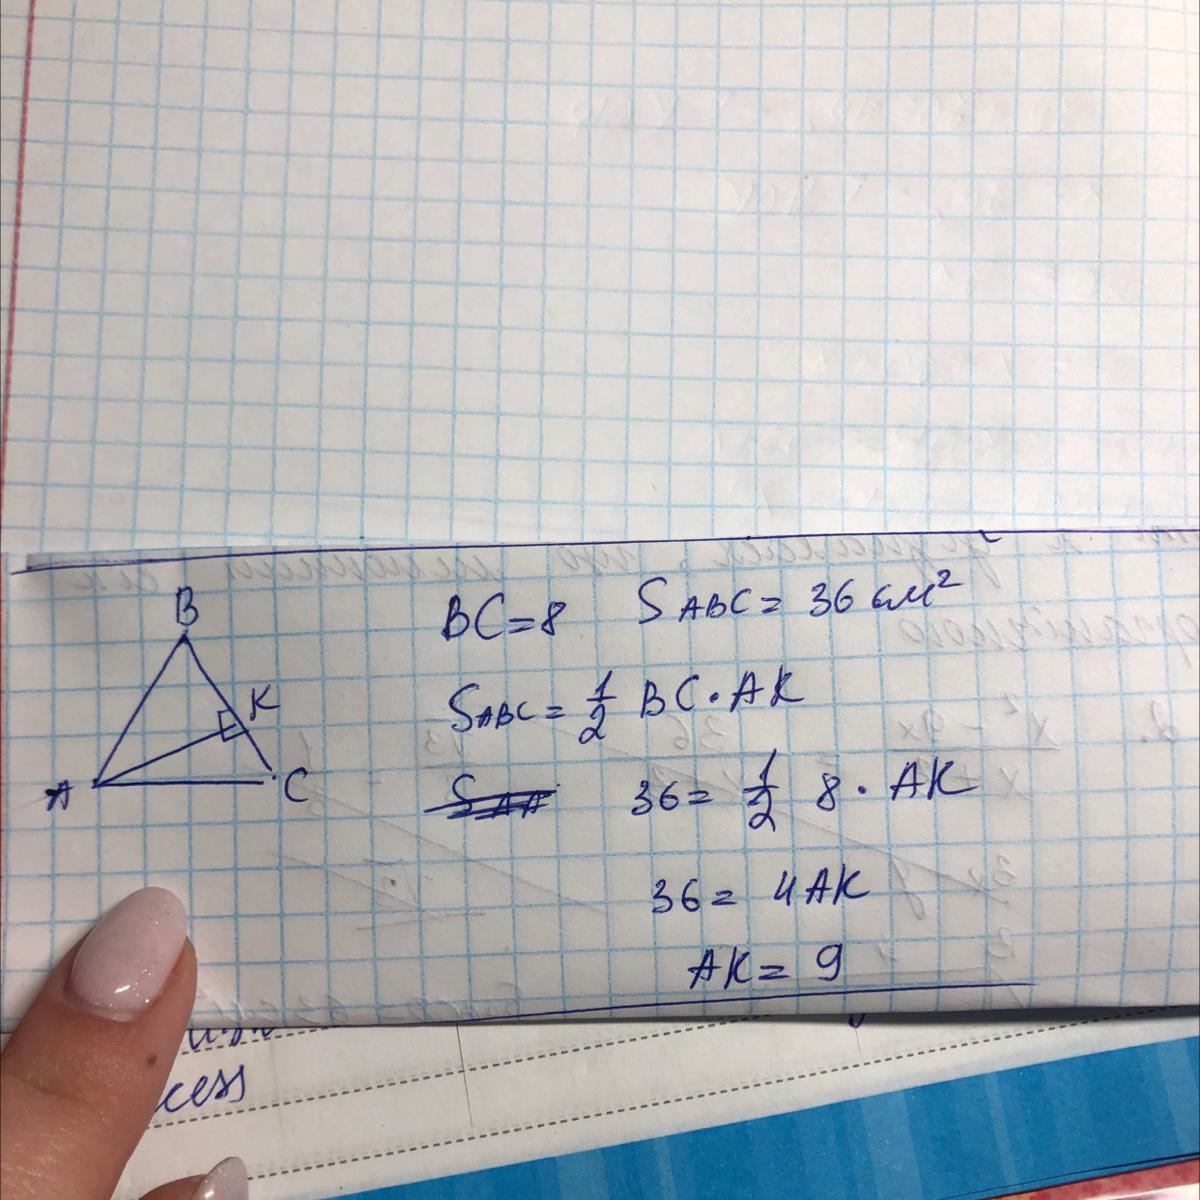 B
K
A
C
BC=8 S ABC = 36 см²
S ABC = 1/2 BC · AK
36 = 1/2 8 · AK
36 = 4AK
AK = 9
cess